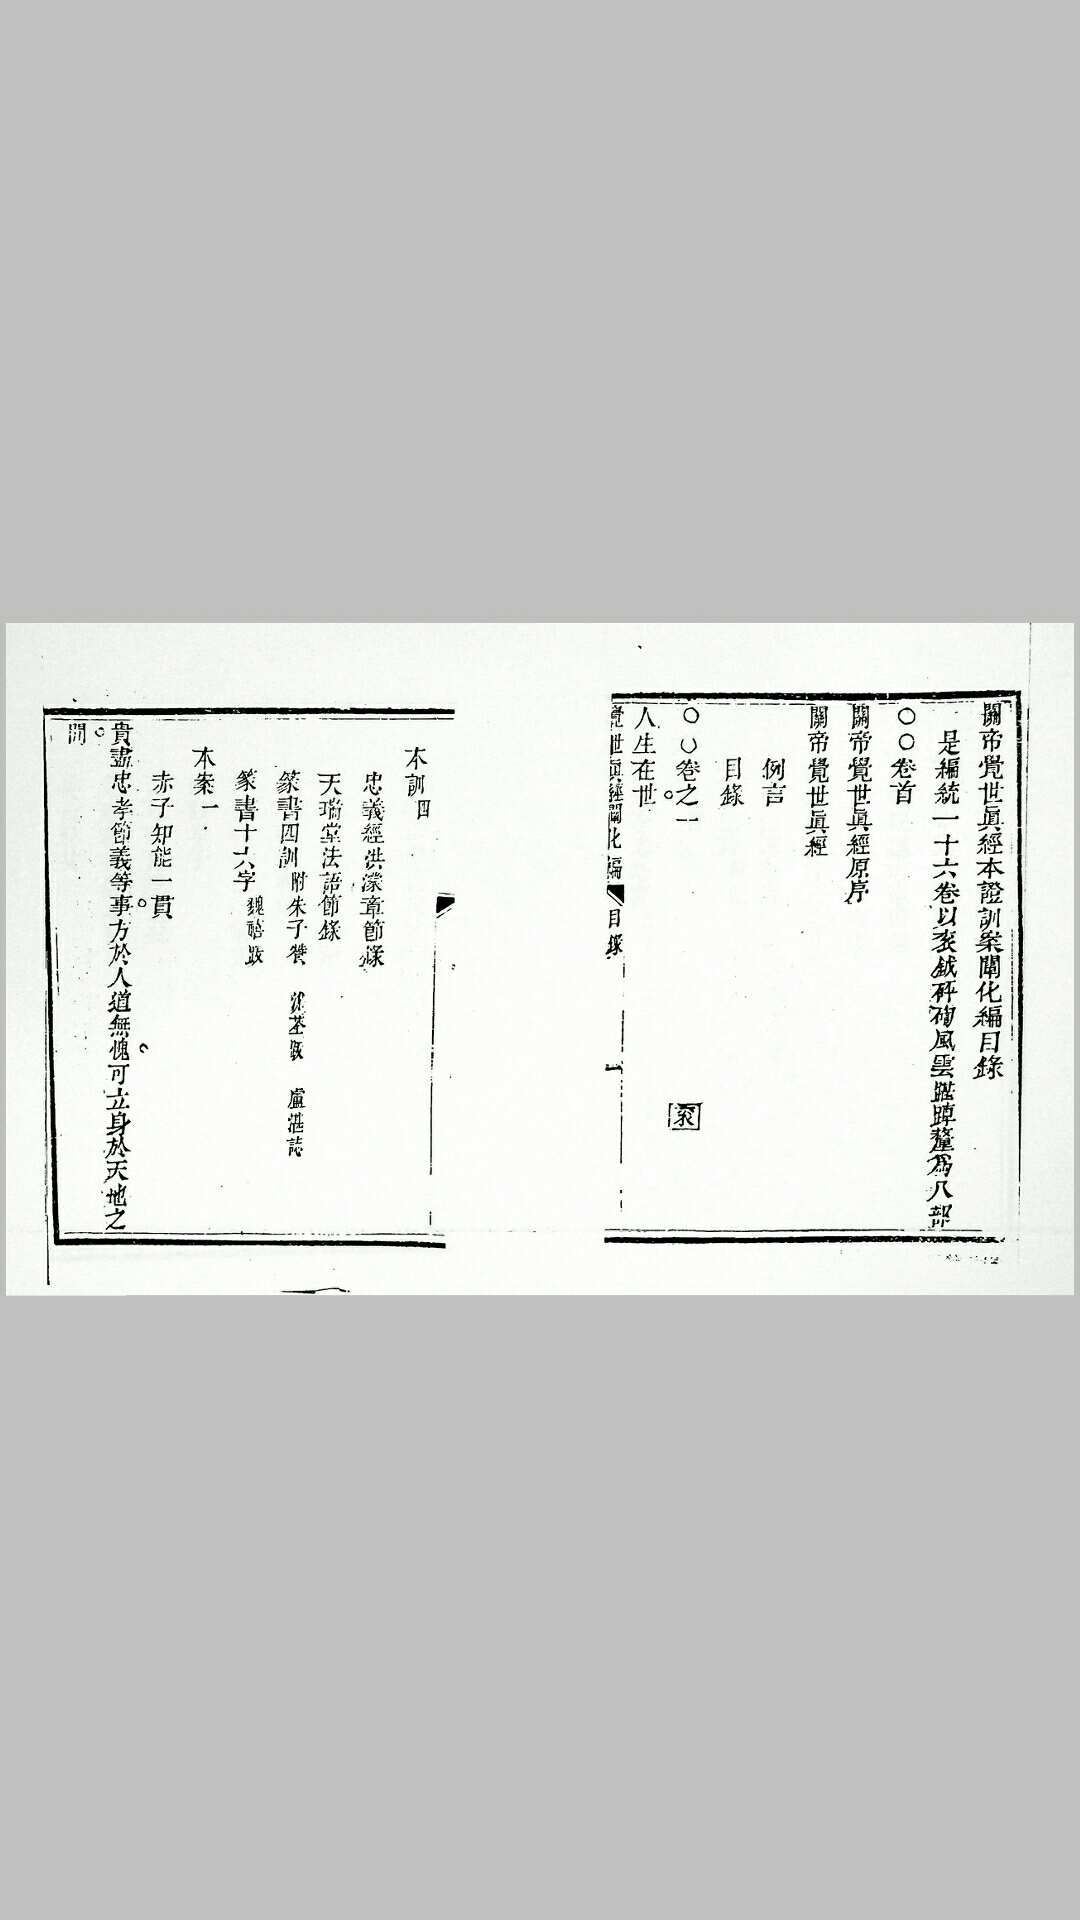 關帝覺世眞經本證訓案闡化編目錄
是編統一十六卷以袞鉞砰硡風雲踸踔釐爲八部
○○卷首
關帝覺世眞經原序
關帝覺世眞經
例言
目錄
○○卷之一
袞
人生在世
覺世眞經闡化編 目錄 一
本訓四
忠義經洪濛章節錄
天瑞堂法語節錄
篆書四訓 附朱子贊 沈荃跋 盧湛誌
篆書十六字 魏禧跋
本案一
赤子知能一貫
貴盡忠孝節義等事方於人道無愧可立身於天地之
間